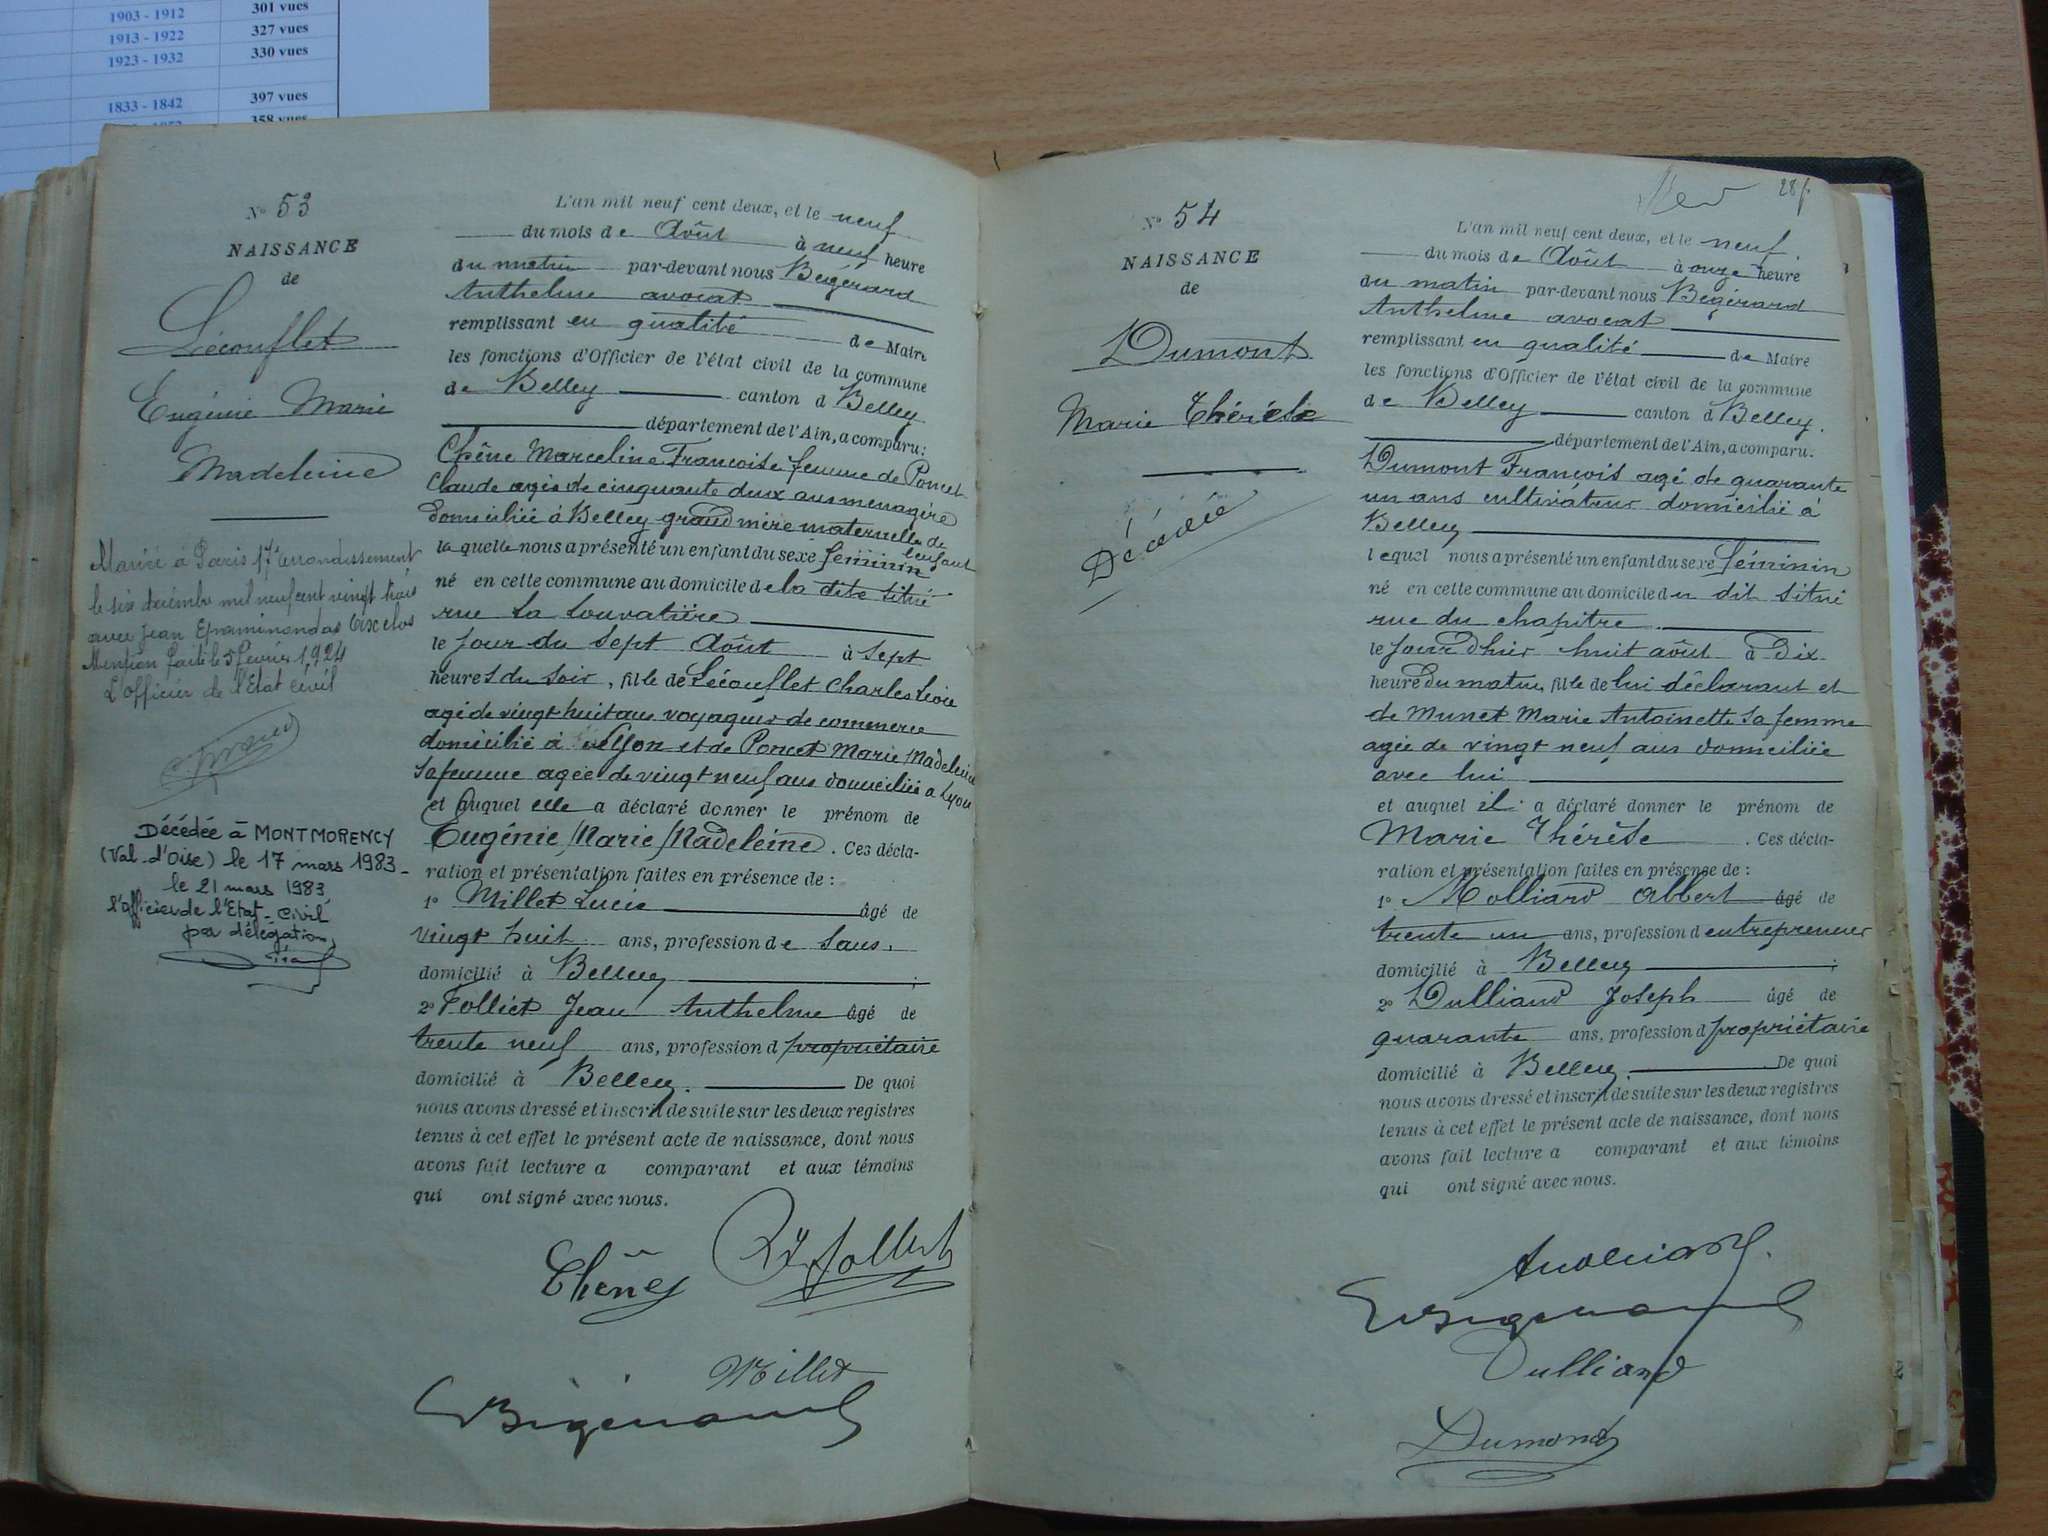 1903 - 1912 301 vues
1913 - 1922 327 vues
1923 - 1932 330 vues
1833 - 1842 397 vues
358 vues
N° 53
NAISSANCE
de
Lécouflet
Eugénie Marie
Madeleine
Mariée à Paris 17e arrondissement
le six décembre mil neuf cent vingt trois
avec Jean Epaminondas
Mention faite le 5 février 1924
L'officier de l'Etat civil
Décédée à MONTMORENCY
(Val-d'Oise) le 17 mars 1983-
le 21 mars 1983
l'officier de l'Etat-civil
par délégation,
L'an mil neuf cent deux, et le neuf
du mois de Août à neuf heure
du matin par-devant nous Bégérard
Anthelme avocat
remplissant en qualité de Maire
les fonctions d'Officier de l'état civil de la commune
de Belley canton d Belley
département de l'Ain, a comparu:
Chêne Marceline Francoise femme de Poncet
Claude agée de cinquante deux ans menagère
domiciliée à Belley grand mère maternelle de
l'enfant
laquelle nous a présenté un enfant du sexe féminin
né en cette commune au domicile de la dite situé
rue La Louvatière
le jour du sept Août à sept
heures du soir, fille de Lécouflet Charles
agé de vingt huit ans voyageur de commerce
domicilié à Lyon et de Poncet Marie Madeleine
sa femme agée de vingt neuf ans domiciliée a Lyon
et auquel elle a déclaré donner le prénom de
Eugénie Marie Madeleine. Ces décla-
ration et présentation faites en présence de :
1° Millet Lucie âgé de
vingt huit ans, profession de sans.
domicilié à Belley ;
2° Folliet Jean Anthelme âgé de
trente neuf ans, profession d propriétaire
domicilié à Belley. De quoi
nous avons dressé et inscrit de suite sur les deux registres
tenus à cet effet le présent acte de naissance, dont nous
avons fait lecture a comparant et aux témoins
qui ont signé avec nous.
Chêne
Millet
N° 54
NAISSANCE
de
Dumont
Marie Thérèse
Décédée
L'an mil neuf cent deux, et le neuf
du mois de Août à onze heure
du matin par-devant nous Bégérard
Anthelme avocat
remplissant en qualité de Maire
les fonctions d'Officier de l'état civil de la commune
de Belley canton d Belley.
département de l'Ain, a comparu.
Dumont François agé de quarante
un ans cultivateur domicilié à
Belley
lequel nous a présenté un enfant du sexe féminin
né en cette commune au domicile du dit situé
rue du chapitre
le jour d'hier huit août à dix
heure du matin, fille de lui déclarant et
de Munet Marie Antoinette sa femme
agée de vingt neuf ans domiciliée
avec lui
et auquel il a déclaré donner le prénom de
Marie Thérèse. Ces décla-
ration et présentation faites en présense de :
1° Molliard Albert âgé de
trente un ans, profession d entrepreneur
domicilié à Belley ;
2° Dulliand Joseph âgé de
quarante ans, profession d propriétaire
domicilié à Belley. De quoi
nous avons dressé et inscrit de suite sur les deux registres
tenus à cet effet le présent acte de naissance, dont nous
avons fait lecture a comparant et aux témoins
qui ont signé avec nous.
Dulliand
Dumont